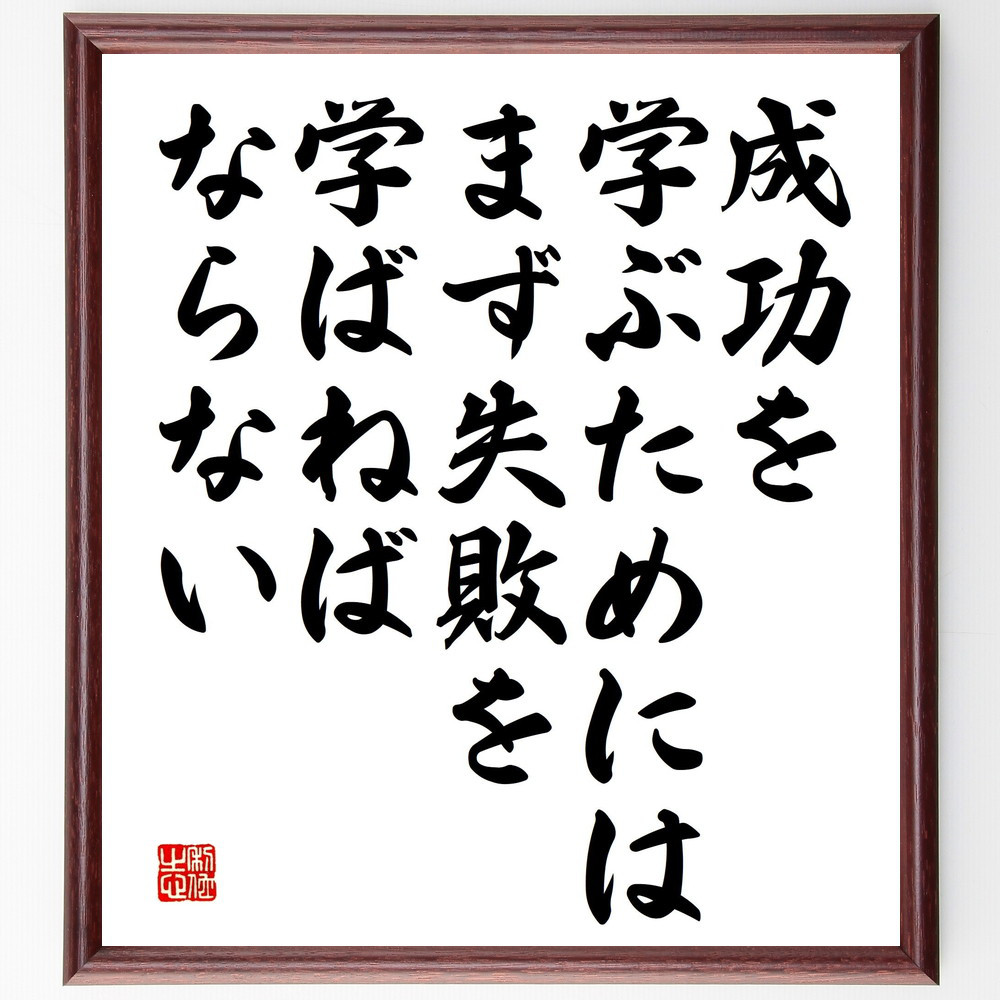 成功を
学ぶためには
まず失敗を
学ばねば
ならない